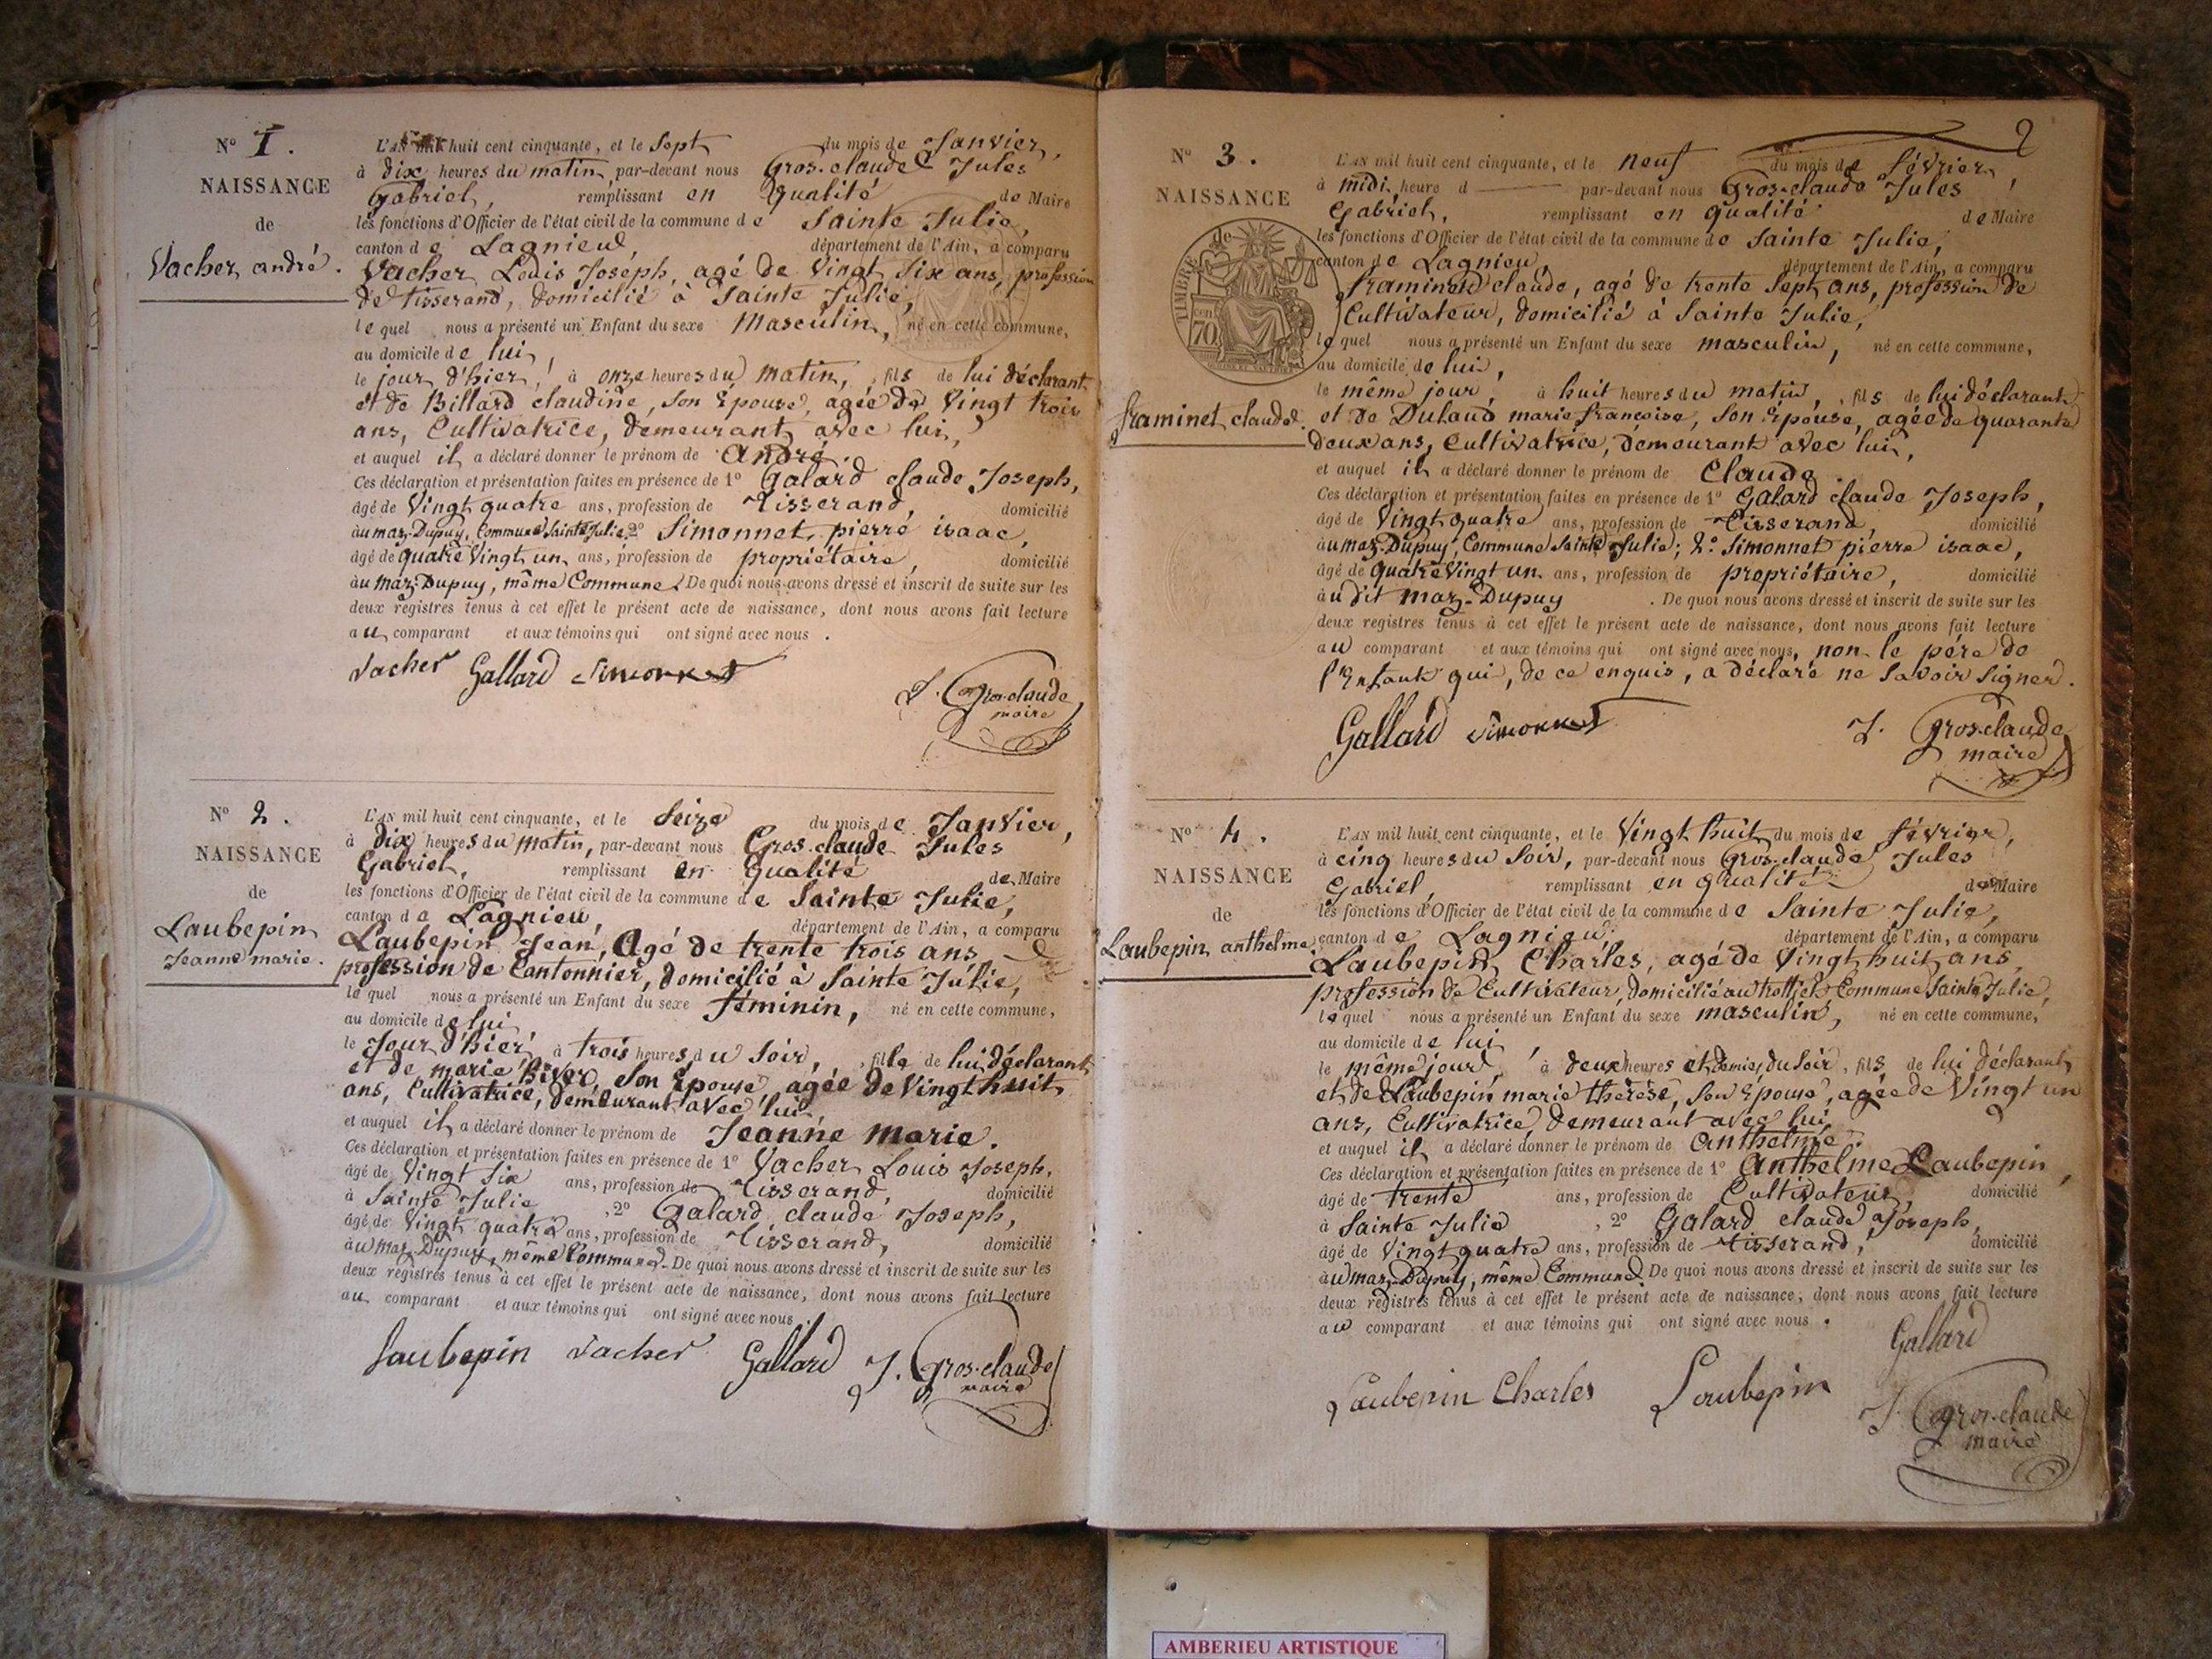 N° 1.
NAISSANCE
de
Vacher andré.
L'AN mil huit cent cinquante, et le Sept du mois de Janvier,
à dix heures du matin, par-devant nous Gros-claude Jules
Gabriel, remplissant en qualité de Maire
les fonctions d'Officier de l'état civil de la commune de Sainte Julie,
canton de Lagnieu, département de l'Ain, a comparu
Vacher Louis Joseph, agé de Vingt Six ans, profession
de tisserand, domicilié à Sainte Julie,
lequel nous a présenté un Enfant du sexe Masculin, né en cette commune,
au domicile de lui,
le jour d'hier, à onze heures du matin, fils de lui déclarant
et de Billard claudine, Son Epouse, agée de Vingt trois
ans, Cultivatrice, demeurant avec lui,
et auquel il a déclaré donner le prénom de André.
Ces déclaration et présentation faites en présence de 1° Galard claude Joseph,
âgé de Vingt quatre ans, profession de Tisserand, domicilié
au maz-Dupuy, Commune Sainte Julie, 2° Simonnet pierre isaac,
âgé de quatre Vingt un ans, profession de propriétaire, domicilié
au Maz-Dupuy, même Commune. De quoi nous avons dressé et inscrit de suite sur les
deux registres tenus à cet effet le présent acte de naissance, dont nous avons fait lecture
au comparant et aux témoins qui ont signé avec nous.
Vacher Gallard Simonnet
J. Gros-claude
maire
N° 2.
NAISSANCE
de
Laubepin
Jeanne marie.
L'AN mil huit cent cinquante, et le Seize du mois de Janvier,
à dix heures du matin, par-devant nous Gros-claude Jules
Gabriel, remplissant en qualité de Maire
les fonctions d'Officier de l'état civil de la commune de Sainte Julie,
canton de Lagnieu, département de l'Ain, a comparu
Laubepin Jean, Agé de trente trois ans
profession de Cantonnier, domicilié à Sainte Julie,
lequel nous a présenté un Enfant du sexe féminin, né en cette commune,
au domicile de lui,
le Jour d'hier à trois heures du Soir, fille de lui déclarant
et de marie Son Epouse, agée de Vingt huit
ans, Cultivatrice, demeurant avec lui,
et auquel il a déclaré donner le prénom de Jeanne Marie.
Ces déclaration et présentation faites en présence de 1° Vacher Louis Joseph,
âgé de Vingt Six ans, profession de Tisserand, domicilié
à Sainte Julie, 2° Galard claude Joseph,
âgé de Vingt quatre ans, profession de Tisserand, domicilié
au maz-Dupuy, même Commune. De quoi nous avons dressé et inscrit de suite sur les
deux registres tenus à cet effet le présent acte de naissance, dont nous avons fait lecture
au comparant et aux témoins qui ont signé avec nous.
Laubepin Vacher Gallard J. Gros-claude
maire
2
N° 3.
NAISSANCE
de
TIMBRE
cen
70
framinet claude.
L'AN mil huit cent cinquante, et le neuf du mois de février,
à midi, heure d par-devant nous Gros-claude Jules
Gabriel, remplissant en qualité de Maire
les fonctions d'Officier de l'état civil de la commune de Sainte Julie,
canton de Lagnieu, département de l'Ain, a comparu
framinet claude, agé de trente Sept ans, profession de
Cultivateur, domicilié à Sainte Julie,
lequel nous a présenté un Enfant du sexe masculin, né en cette commune,
au domicile de lui,
le même jour, à huit heures du matin, fils de lui déclarant
et de Dulaud marie françoise, Son Epouse, agée de quarante
deux ans, Cultivatrice, demeurant avec lui,
et auquel il a déclaré donner le prénom de Claude.
Ces déclaration et présentation faites en présence de 1° Galard claude Joseph,
âgé de Vingt quatre ans, profession de Tisserand, domicilié
au maz-Dupuy, Commune Sainte Julie; 2° Simonnet pierre isaac,
âgé de quatre Vingt un ans, profession de propriétaire, domicilié
au dit maz-Dupuy. De quoi nous avons dressé et inscrit de suite sur les
deux registres tenus à cet effet le présent acte de naissance, dont nous avons fait lecture
au comparant et aux témoins qui ont signé avec nous, non le père de
l'Enfant qui, de ce enquis, a déclaré ne Savoir Signer.
Gallard Simonnet J. Gros-claude
maire
N° 4.
NAISSANCE
de
Laubepin anthelme
L'AN mil huit cent cinquante, et le Vingt huit du mois de février,
à cinq heures du Soir, par-devant nous Gros-claude Jules
Gabriel, remplissant en qualité de Maire
les fonctions d'Officier de l'état civil de la commune de Sainte Julie,
canton de Lagnieu département de l'Ain, a comparu
Laubepin Charles, agé de Vingt huit ans,
profession de Cultivateur, domicilié au Commune Sainte Julie,
lequel nous a présenté un Enfant du sexe masculin, né en cette commune,
au domicile de lui,
le même jour, à deux heures et demie, du Soir, fils de lui déclarant
et de Laubepin marie thérèse, Son Epouse, agée de Vingt un
ans, Cultivatrice, demeurant avec lui,
et auquel il a déclaré donner le prénom de Anthelme.
Ces déclaration et présentation faites en présence de 1° Anthelme Laubepin,
âgé de trente ans, profession de Cultivateur, domicilié
à Sainte Julie, 2° Galard claude Joseph,
âgé de Vingt quatre ans, profession de Tisserand, domicilié
au maz-Dupuy, même Commune. De quoi nous avons dressé et inscrit de suite sur les
deux registres tenus à cet effet le présent acte de naissance, dont nous avons fait lecture
au comparant et aux témoins qui ont signé avec nous.
Gallard
Laubepin Charles Laubepin J. Gros-claude
maire
AMBERIEU ARTISTIQUE